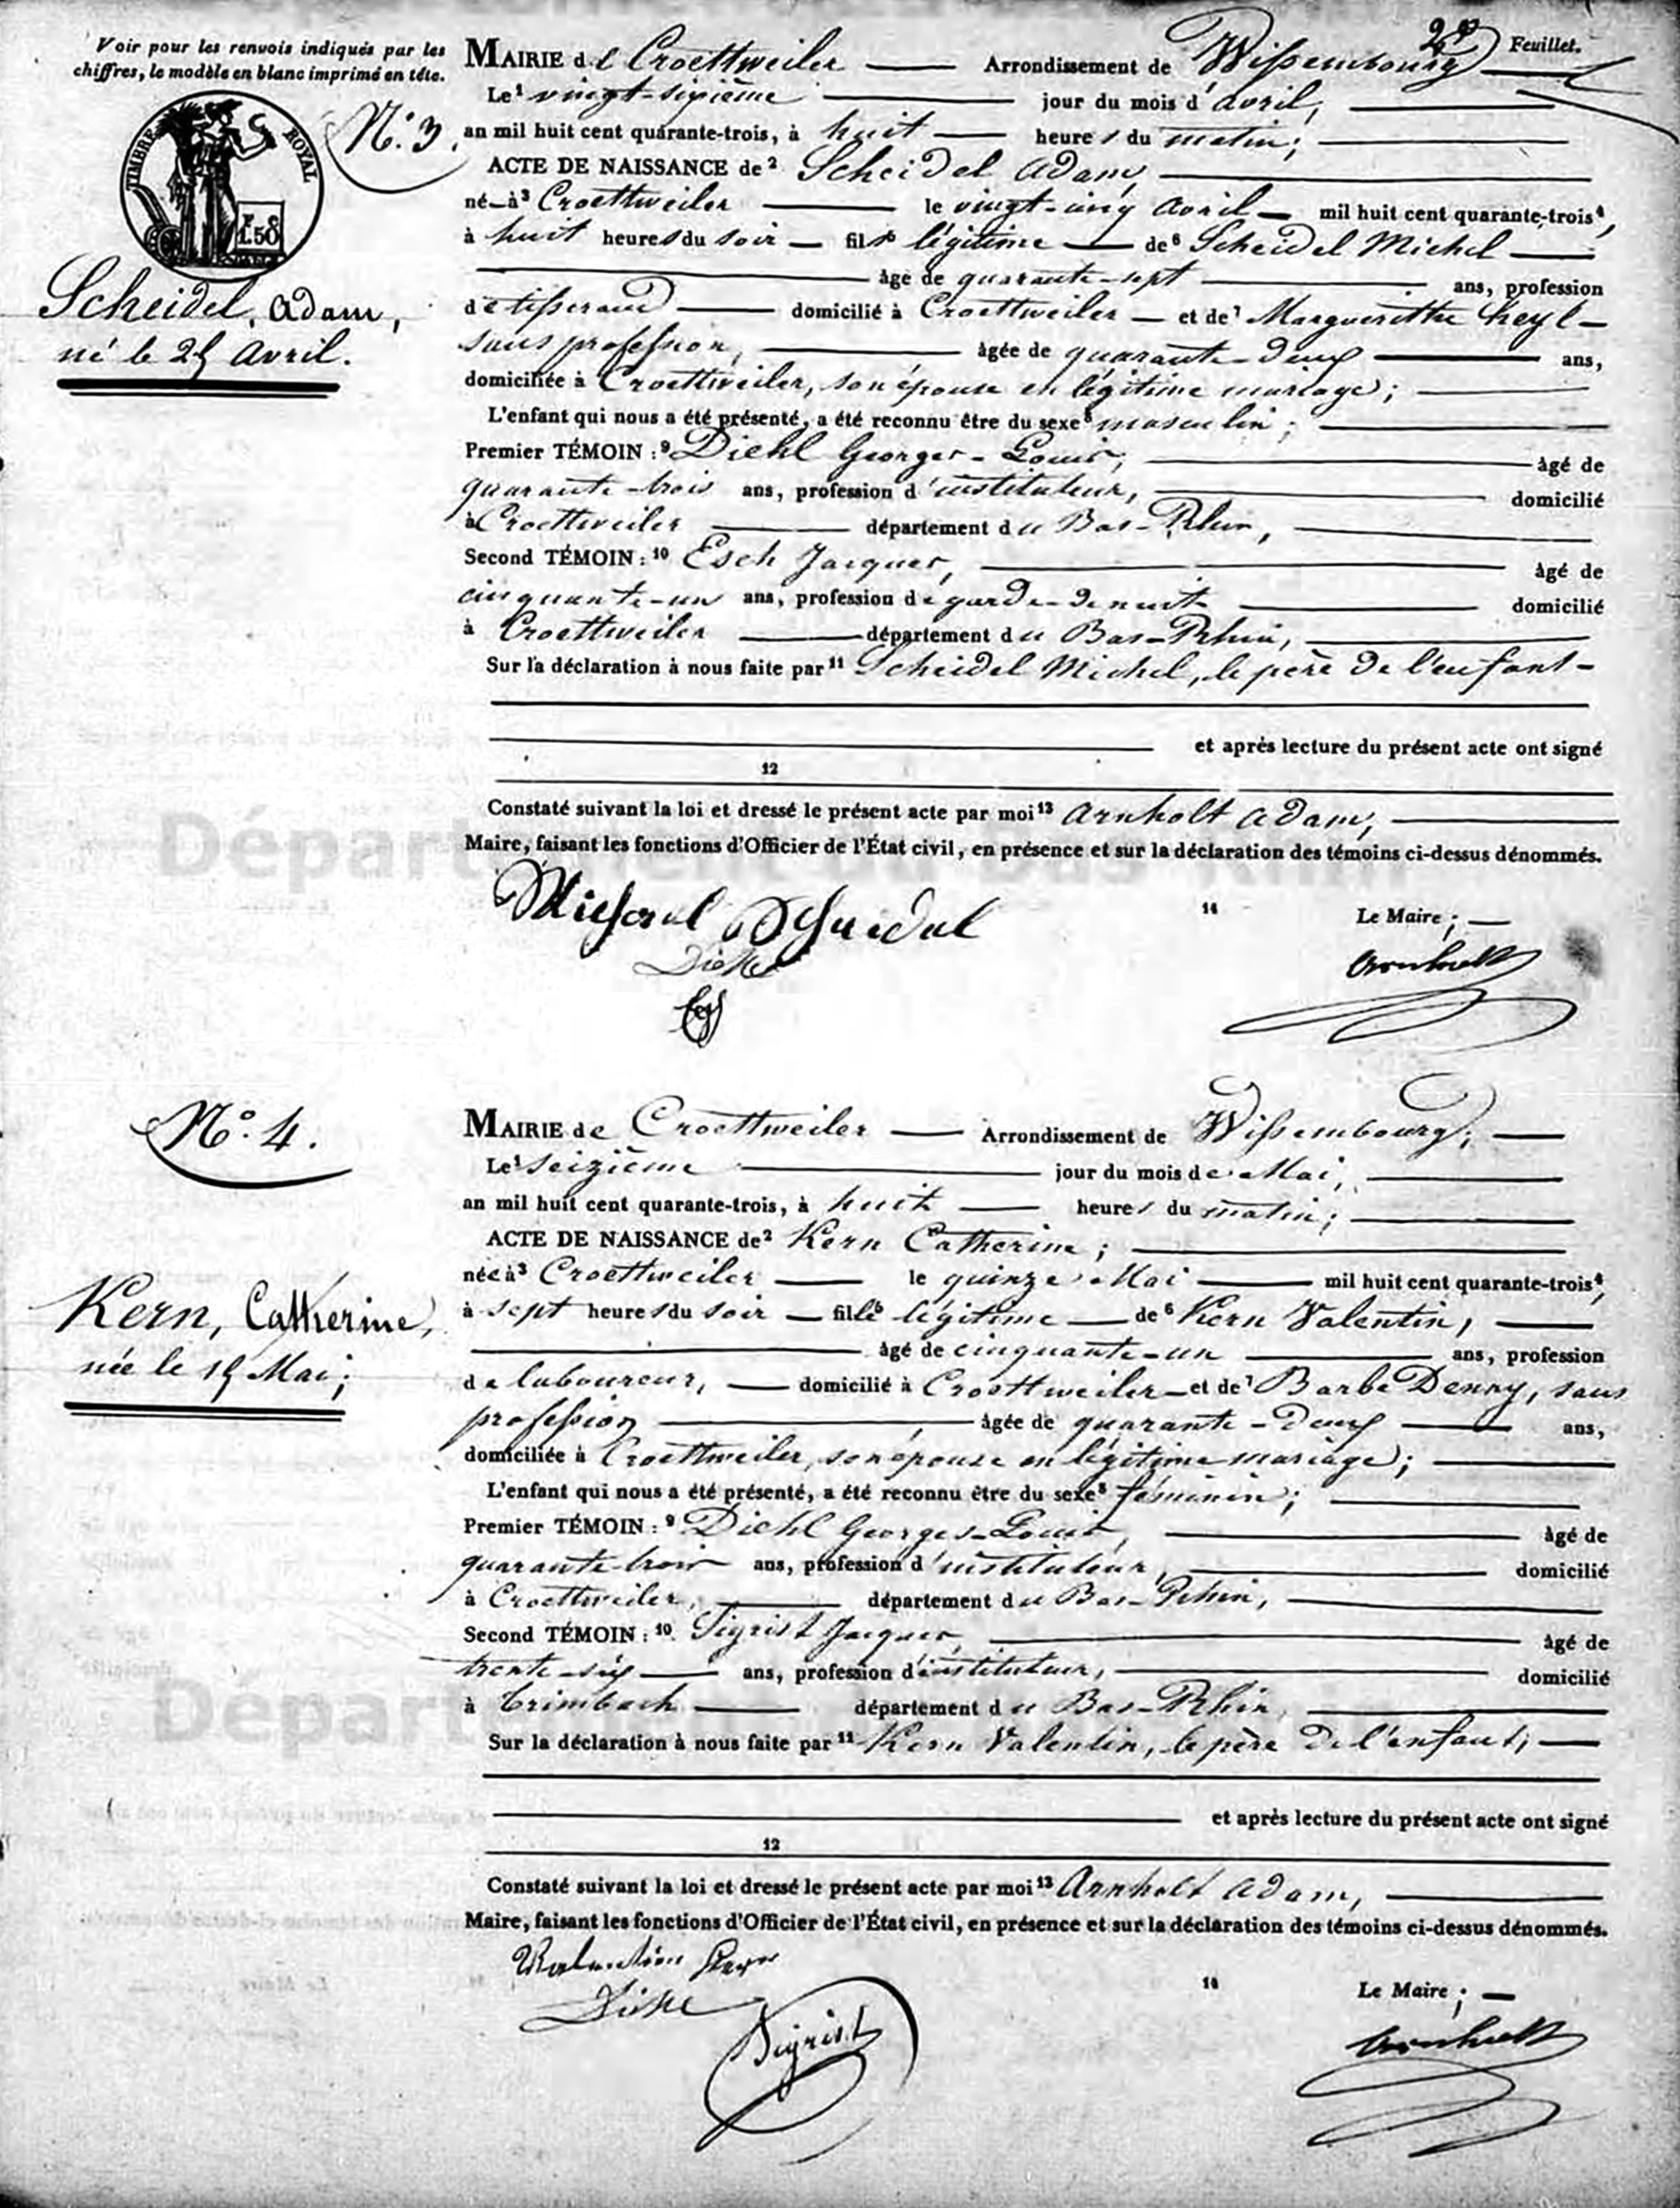 Voir pour les renvois indiqués par les
chiffres, le modèle en blanc imprimé en tête.
TIMBRE ROYAL
N.º 3.
Scheidel, Adam,
né le 25 Avril.
2e Feuillet.
MAIRIE de Croettweiler Arrondissement de Wissembourg
Le1 vingt-sixième jour du mois d'avril,
an mil huit cent quarante-trois, à huit heures du matin;
ACTE DE NAISSANCE de2 Scheidel Adam,
né à3 Croettweiler le vingt-cinq Avril mil huit cent quarante-trois4,
à huit heures du soir fils légitime de6 Scheidel Michel
âgé de quarante-sept ans, profession
de tisserand domicilié à Croettweiler et de7 Marguerithe Heyl
sans profession, âgée de quarante-deux ans,
domiciliée à Croettweiler, son épouse en légitime mariage;
L'enfant qui nous a été présenté, a été reconnu être du sexe8 masculin;
Premier TÉMOIN :9 Diehl Georges-Louis, âgé de
quarante-trois ans, profession d'instituteur, domicilié
à Croettweiler département du Bas-Rhin,
Second TÉMOIN :10 Esch Jacques, âgé de
cinquante-un ans, profession de garde-de nuit domicilié
à Croettweiler département du Bas-Rhin,
Sur la déclaration à nous faite par11 Scheidel Michel, le père de l'enfant
et après lecture du présent acte ont signé
12
Constaté suivant la loi et dressé le présent acte par moi13 Arnholt Adam,
Maire, faisant les fonctions d'Officier de l'État civil, en présence et sur la déclaration des témoins ci-dessus dénommés.
Département du Bas-Rhin
14 Le Maire;
Michael Scheidel
Diehl
Arnholt
N.º 4.
Kern, Catherine,
née le 15 Mai;
MAIRIE de Croettweiler Arrondissement de Wissembourg;
Le1 seizième jour du mois de Mai,
an mil huit cent quarante-trois, à huit heures du matin;
ACTE DE NAISSANCE de2 Kern Catherine;
née à3 Croettweiler le quinze Mai mil huit cent quarante-trois4,
à sept heures du soir fille légitime de6 Kern Valentin,
âgé de cinquante-un ans, profession
de laboureur, domicilié à Croettweiler et de7 Barbe Denny, sans
profession âgée de quarante-deux ans,
domiciliée à Croettweiler, son épouse en légitime mariage;
L'enfant qui nous a été présenté, a été reconnu être du sexe8 féminin;
Premier TÉMOIN :9 Diehl Georges-Louis, âgé de
quarante-trois ans, profession d'instituteur, domicilié
à Croettweiler, département du Bas-Rhin,
Second TÉMOIN :10 Sigrist Jacques, âgé de
trente-six ans, profession d'instituteur, domicilié
à Trimbach département du Bas-Rhin,
Sur la déclaration à nous faite par11 Kern Valentin, le père de l'enfant;
et après lecture du présent acte ont signé
12
Constaté suivant la loi et dressé le présent acte par moi13 Arnholt Adam,
Maire, faisant les fonctions d'Officier de l'État civil, en présence et sur la déclaration des témoins ci-dessus dénommés.
Valentin Kern
14 Le Maire;
Diehl
Sigrist
Arnholt